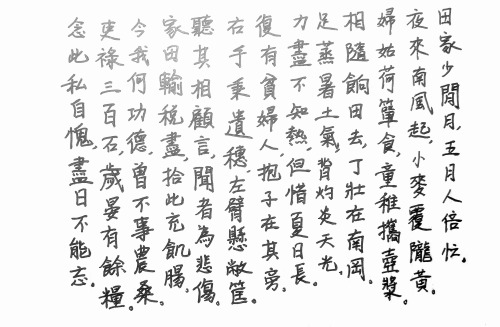 田家少閒月，五月人倍忙。
夜來南風起，小麥覆隴黃。
婦姑荷簞食，童稚攜壺漿。
相隨餉田去，丁壯在南岡。
足蒸暑土氣，背灼炎天光，
力盡不知熱，但惜夏日長。
復有貧婦人，抱子在其旁，
右手秉遺穗，左臂懸敝筐。
聽其相顧言，聞者為悲傷。
家田輸稅盡，拾此充飢腸。
今我何功德，曾不事農桑。
吏祿三百石，歲晏有餘糧。
念此私自愧，盡日不能忘。